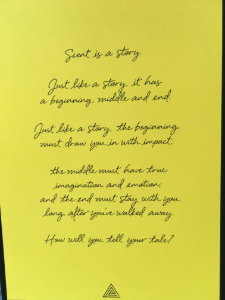 Scent is a story
Just like a story, it has
a beginning, middle and end.
Just like a story, the beginning
must draw you in with impact,
the middle must have true
imagination and emotion,
and the end must stay with you
long after you've walked away.
How will you tell your tale?